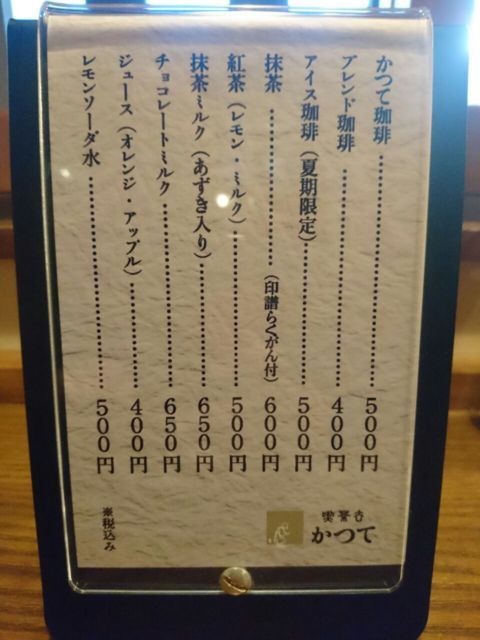 かつて珈琲………………500円
ブレンド珈琲………………400円
アイス珈琲(夏期限定)…………500円
抹茶………………(印譜らくがん付)600円
紅茶(レモン・ミルク)…………500円
抹茶ミルク(あずき入り)…………650円
チョコレートミルク………………650円
ジュース(オレンジ・アップル)………400円
レモンソーダ水………………500円
かつて
※税込み